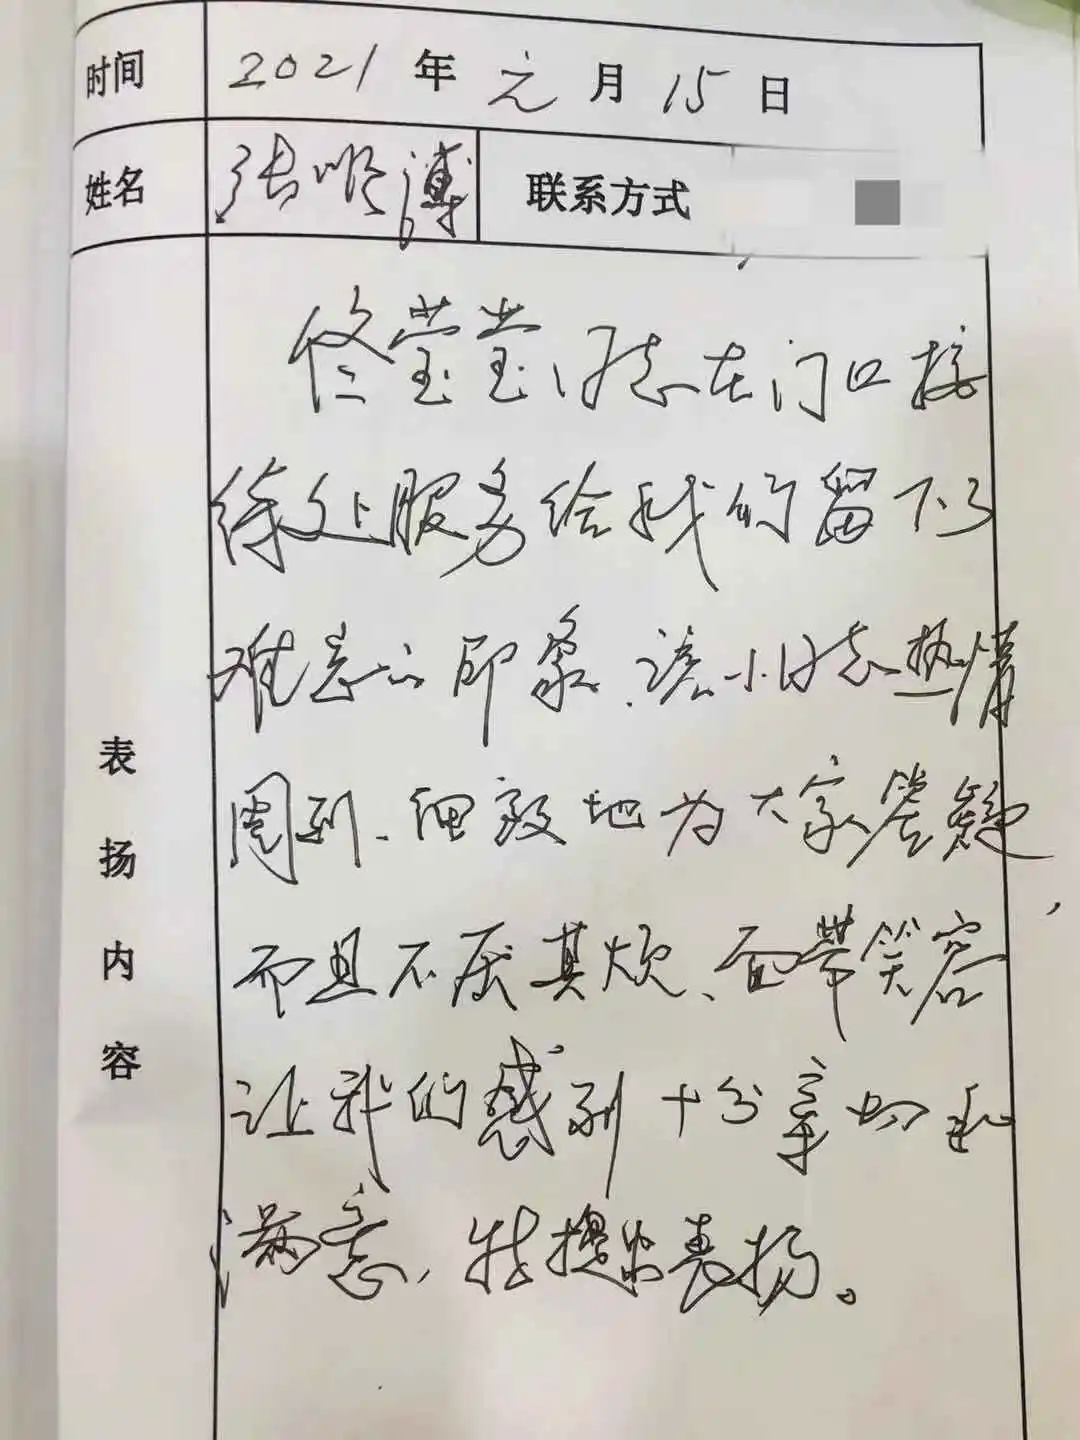 时间 2021 年 元 月 15 日
姓名 张 联系方式
表扬内容
佟莹莹同志在门口接
待处服务给我们留下了
难忘的印象、该小同志热情
周到、细致地为大家答疑，
而且不厌其烦、面带笑容
让我们感到十分亲切和
满意，特提出表扬。